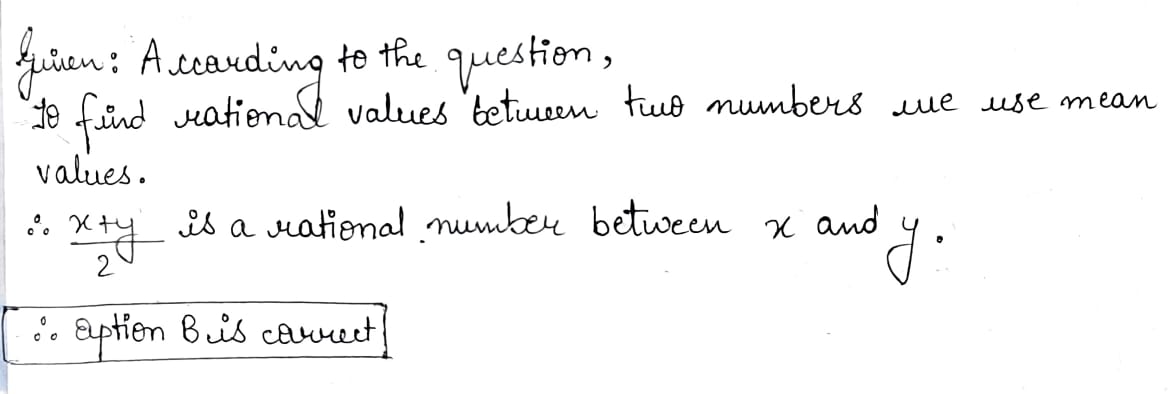 Given: According to the question,
To find rational values between two numbers we use mean
values.
∴ x+y/2 is a rational number between x and y.
∴ option B is correct